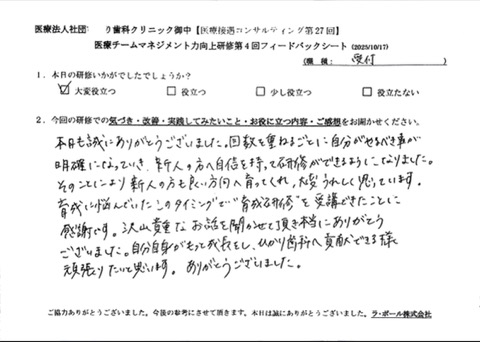 医療法人社団 り歯科クリニック御中【医療接遇コンサルティング第27回】
医療チームマネジメント力向上研修第4回フィードバックシート (2025/10/17)
(職種: 受付 )
1．本日の研修いかがでしたでしょうか？
☑ 大変役立つ □ 役立つ □ 少し役立つ □ 役立たない
2．今回の研修での気づき・改善・実践してみたいこと・お役に立つ内容・ご感想をお聞かせください。
本日も誠にありがとうございました。回数を重ねるごとに自分がやるべき事が
明確になっていき、新人の方へ自信を持って研修ができるようになりました。
そのことにより新人の方も良い方向へ育ってくれ、大変うれしく思っています。
育成に悩んでいたこのタイミングで"育成研修"を受講できたことに
感謝です。沢山貴重なお話を聞かせて頂き本当にありがとう
ございました。自分自身がもっと成長をし、ひかり歯科へ貢献できる様
頑張りたいと思います。ありがとうございました。
ご協力ありがとうございました。今後の参考にさせて頂きます。本日は誠にありがとうございました。ラ・ポール株式会社